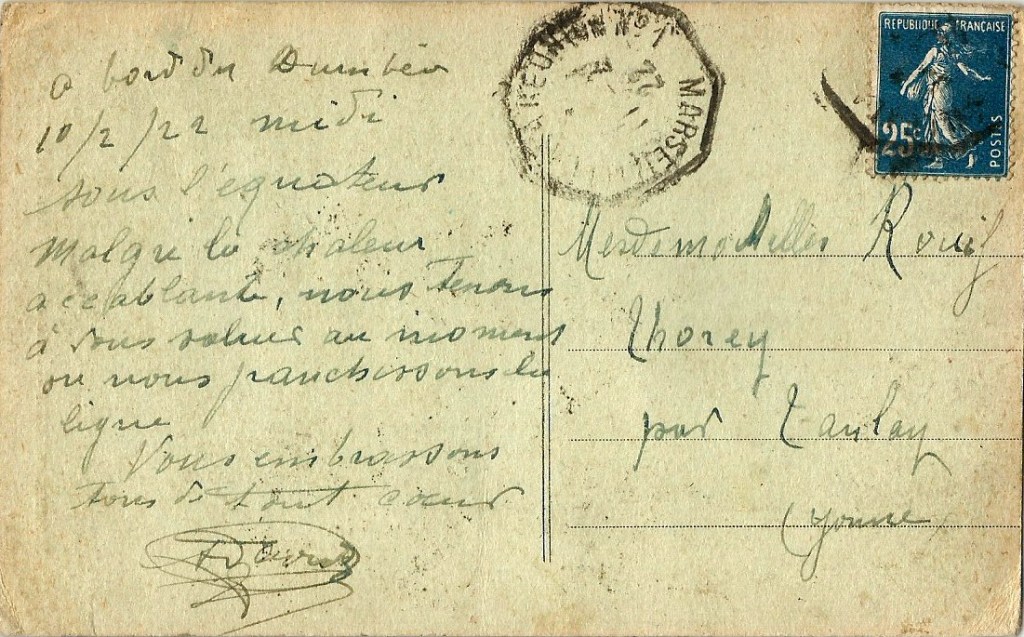 a bord du Dumbéa
10/2/22 midi
sous l'equateur
Malgré la chaleur
accablante, nous tenons
à vous saluer au moment
ou nous franchissons la
ligne
Vous embrassons
tous de tout cœur
LA REUNION No 1
22
MARSEILLE
REPUBLIQUE FRANÇAISE
25c
POSTES
Mesdemoiselles
Thorey
par Tanlay
(Yonne)